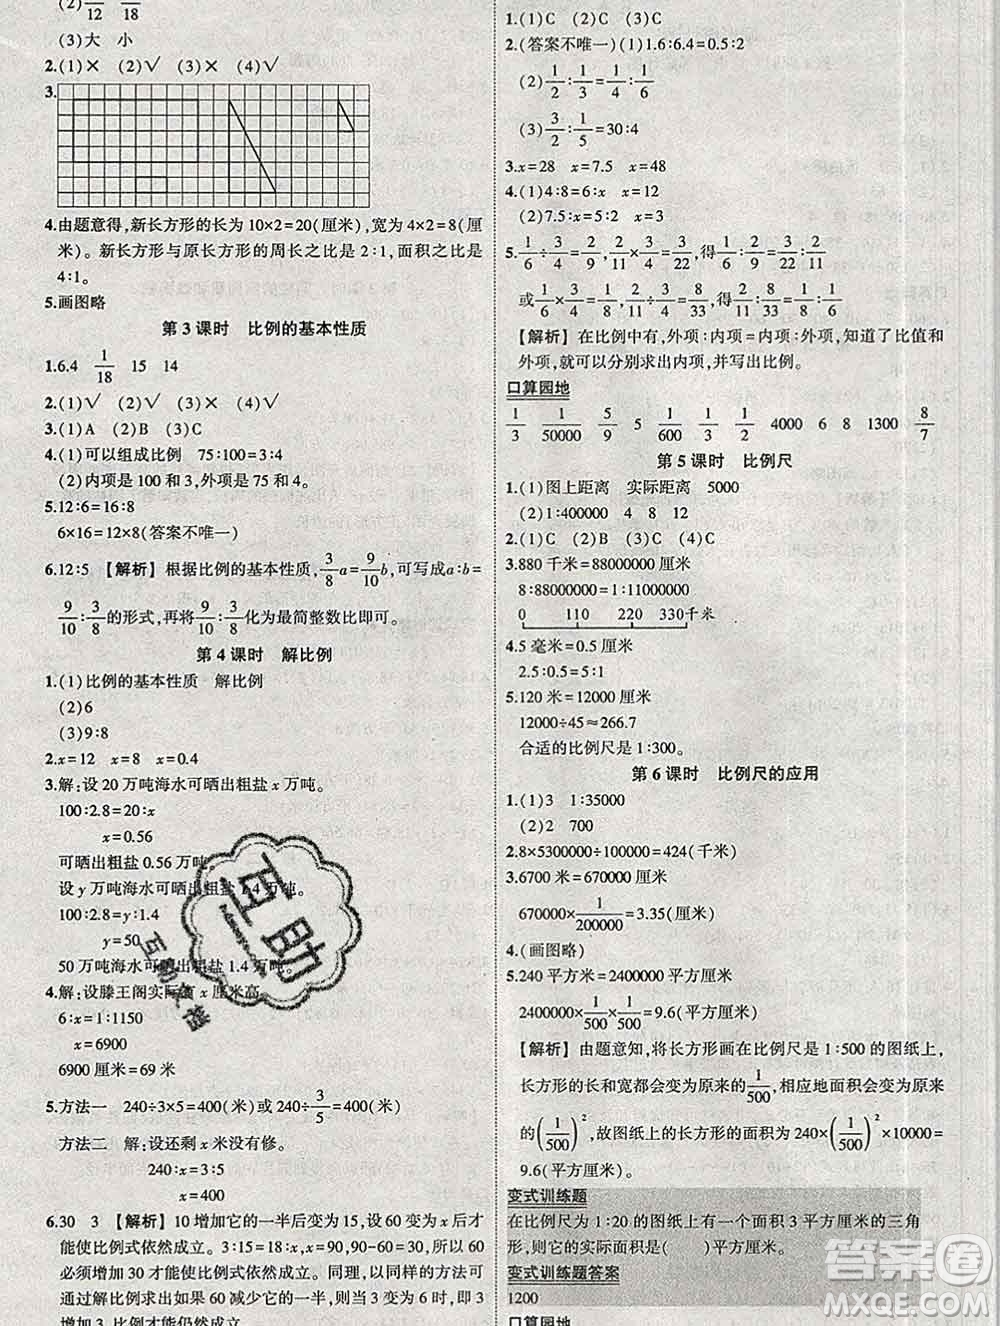 (2) /12 /18
(3)大 小
2.(1)× (2)√ (3)× (4)√
3.
4.由题意得,新长方形的长为10×2=20(厘米),宽为4×2=8(厘
米)。新长方形与原长方形的周长之比是2:1,面积之比是
4:1。
5.画图略
第3课时 比例的基本性质
1.6.4 1/18 15 14
2.(1)√ (2)√ (3)× (4)√
3.(1)A (2)B (3)C
4.(1)可以组成比例 75:100=3:4
(2)内项是100和3,外项是75和4。
5.12:6=16:8
6×16=12×8(答案不唯一)
6.12:5 【解析】根据比例的基本性质,3/8a=9/10b,可写成a:b=
9/10:3/8的形式,再将9/10:3/8化为最简整数比即可。
第4课时 解比例
1.(1)比例的基本性质 解比例
(2)6
(3)9:8
2.x=12 x=8 x=0.4
3.解:设20万吨海水可晒出粗盐x万吨。
100:2.8=20:x
x=0.56
可晒出粗盐0.56万吨。
设y万吨海水可晒出粗盐1.4万吨。
100:2.8=y:1.4
y=50
50万吨海水可晒出粗盐1.4万吨。
4.解:设滕王阁实际高x厘米高。
6:x=1:1150
x=6900
6900厘米=69米
5.方法一 240÷3×5=400(米)或240÷3/5=400(米)
方法二 解:设还剩x米没有修。
240:x=3:5
x=400
6.30 3 【解析】10增加它的一半后变为15,设60变为x后才
能使比例式依然成立。3:15=18:x,x=90,90-60=30,所以60
必须增加30才能使比例式依然成立。同理,以同样的方法可
通过解比例求出如果60减少它的一半,则3
增加3,比例才能仍然成立。
1.(1)C (2)C (3)C
2.(答案不唯一)(1)1.6:6.4=0.5:2
(2)1/2:1/3=1/4:1/6
(3)3/2:1/5=30:4
3.x=28 x=7.5 x=48
4.(1)4:8=6:x x=12
(2)7.5:x=5:2 x=3
5.1/6÷4/9=3/8,1/6÷4/9=3/22,得1/6:3/8=3/22:2/11
或1/6×4/9=2/27,2/11÷4/9=9/22,得1/6:2/27=9/22:2/11
【解析】在比例中有,外项:内项=内项:外项,知道了比值和
外项,就可以分别求出内项,并写出比例。
口算园地
1/3 1/50000 5/9 5 1/600 1/3 1/2 4000 6 8 1300 8/7
第5课时 比例尺
1.(1)图上距离 实际距离 5000
(2)1:400000 4 8 12
2.(1)C (2)C
3.880千米=88000000厘米
8:88000000=1:11000000
0 110 220 330千米
4.5毫米=0.5厘米
2.5:0.5=5:1
5.120米=12000厘米
12000÷45≈266.7
合适的比例尺是1:300。
第6课时 比例尺的应用
1.(1)3 1:35000
(2)2 700
2.8×5300000÷100000=424(千米)
3.6700米=670000厘米
670000×1/200000=3.35(厘米)
4.(画图略)
5.240平方米=2400000平方厘米
2400000×1/500×1/500=9.6(平方厘米)
【解析】由题意知,将长方形画在比例尺是1:500的图纸上,
长方形的长和宽都会变为原来的1/500,相应地面积会变为原来
的(1/500)²,故图纸上的长方形的面积为240×(1/500)²×10000=
9.6(平方厘米)。
变式训练题
在比例尺为1:20的图纸上有一个面积3平方厘米的三角
形,则它的实际面积是( )平方厘米。
变式训练题答案
1200
口算园地
互助
互助文档
答案圈
MXQE.COM